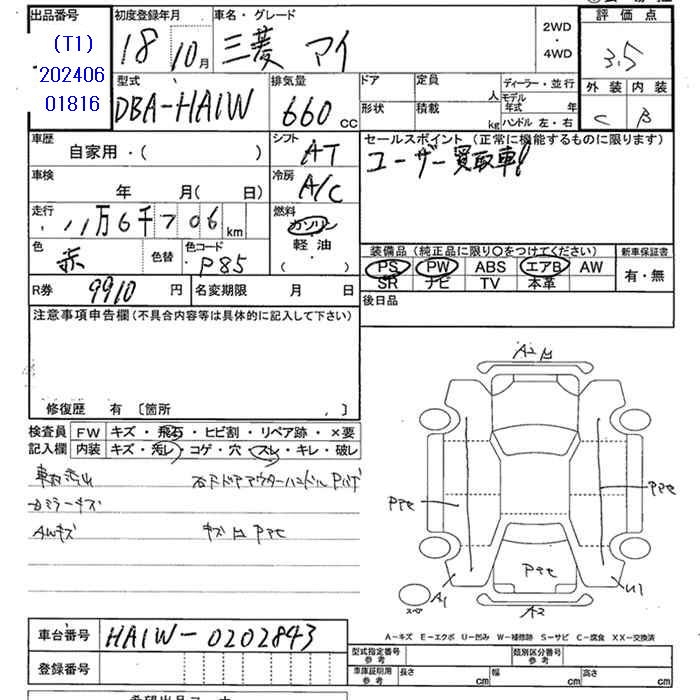 出品番号 初度登録年月 車名・グレード 2WD・4WD 評価点
(T1) 18 10月 三菱 アイ 3.5
202406
01816
型式 排気量 ドア 定員 人 ディーラー・並行 外装 内装
DBA-HA1W 660 cc 形状 積載 kg モデル年式 年 ハンドル 左・右 C B
車歴 シフト セールスポイント (正常に機能するものに限ります)
自家用・( ) AT ユーザー買取車!
車検 冷房
年 月( 日) A/C
走行 11万6千706km 燃料
ガソリン
軽油
・( )
色 赤 色替 色コード P85
装備品 (純正品に限り○をつけてください) 新車保証書
PS PW ABS エアB AW 有・無
SR ナビ TV 本革
R券 9910 円 名変期限 月 日 後日品
注意事項申告欄(不具合内容等は具体的に記入して下さい)
修復歴 有 〔箇所 , 〕
検査員 FW キズ・飛石・ヒビ割・リペア跡・×要
記入欄 内装 キズ・汚レ・コゲ・穴・スレ・キレ・破レ
AWキズ
A1
U1
A2
スペア
A-キズ E-エクボ U-凹み W-補修跡 S-サビ C-腐食 XX-交換済
車台番号 HA1W-0202843
登録番号
型式指定番号 参考 類別区分番号 参考
車庫証明用 参考 長さ cm 幅 cm 高さ cm
希望出品コーナー